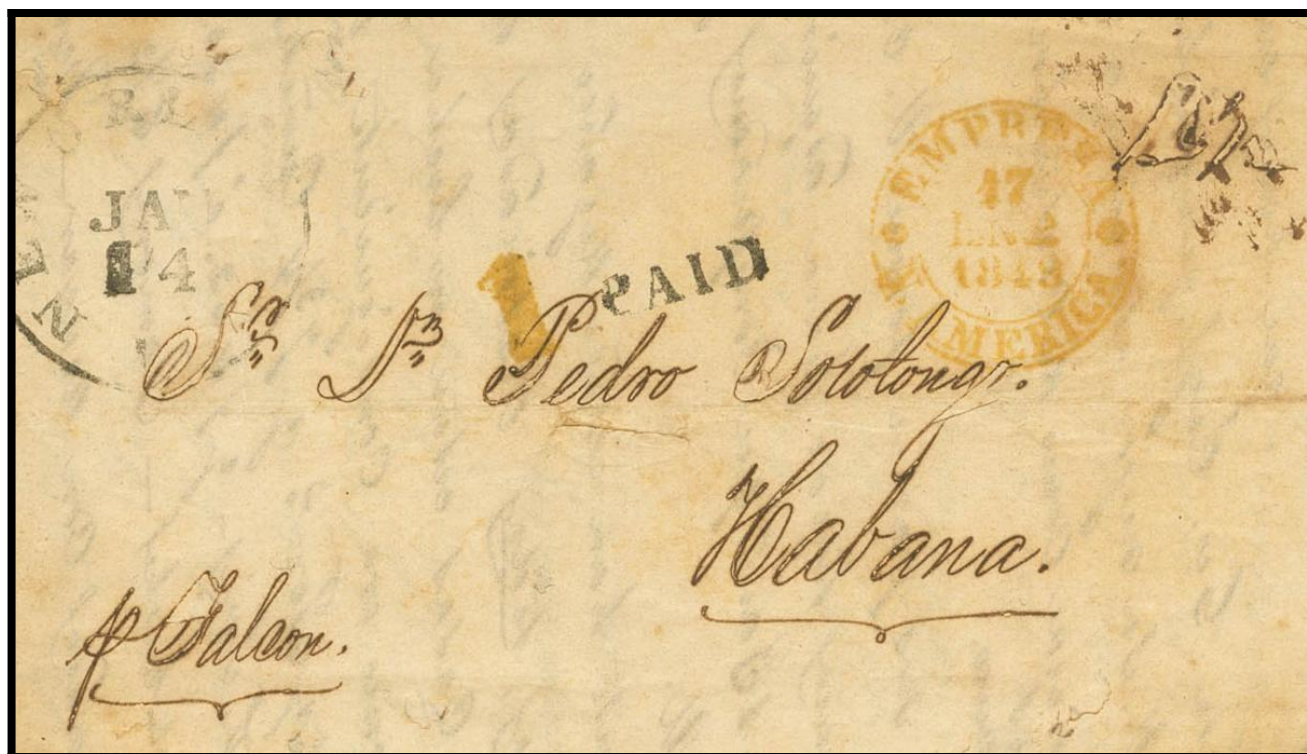 JAN
14
PAID
EMPRESA
17
EN2
1849
AMERICA
Sr. Dn. Pedro Sototongo.
Habana.
p Falcon.